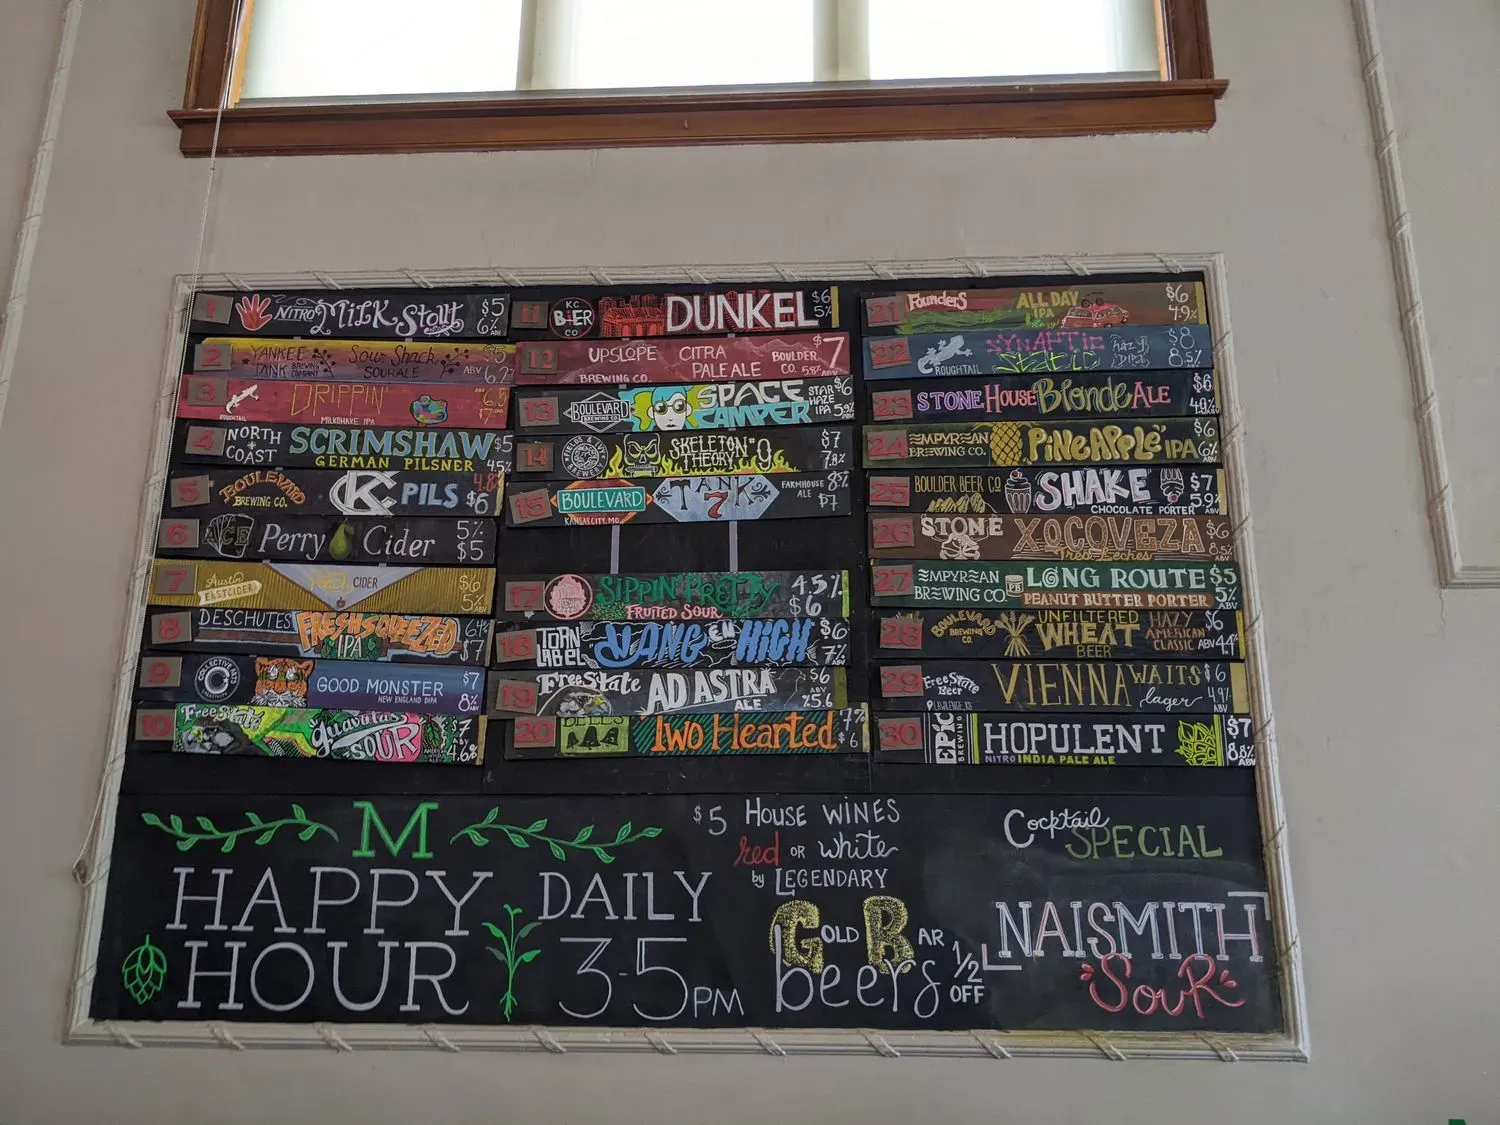 1 NITRO MILK Stout $5 6% ABV
2 YANKEE TANK BREWING COMPANY Sour Shack SOUR ALE $5 ABV 6.2%
3 ROUGHTAIL DRIPPIN' MILKSHAKE IPA ABV 6.5 $7.00
4 NORTH COAST SCRIMSHAW GERMAN PILSNER $5 4.5%
5 BOULEVARD BREWING CO. KC PILS 4.8% $6
6 ACE Perry Cider 5% $5
7 Austin EASTCIDERS CIDER $6 5% ABV
8 DESCHUTES FRESH SQUEEZED IPA 6.4% $7
9 COLLECTIVE ARTS GOOD MONSTER NEW ENGLAND DIPA $7 8% ABV
10 FreeState guavitas SOUR $7 ABV 4.6%
11 KC BIER CO DUNKEL $6 5%
12 UPSLOPE BREWING CO. CITRA PALE ALE BOULDER CO. 5.8% $7
13 BOULEVARD BREWING CO. SPACE CAMPER STAR HAZE IPA $6 5.9% ABV
14 FIELDS & IVY BREWERY SKELETON THEORY #9 $7 7.8%
15 BOULEVARD KANSAS CITY, MO TANK 7 FARMHOUSE ALE 8% $7
17 SIPPIN' PRETTY FRUITED SOUR 4.5% $6
18 TORN LABEL HANG 'EM HIGH $6 7% ABV
19 FreeState AD ASTRA ALE $6 ABV %5.6
20 BELL'S TWO Hearted 7% $6
21 Founders ALL DAY IPA $6 4.9%
22 ROUGHTAIL SYNAPTIC STATIC HAZY DIPA $8 8.5%
23 STONE HOUSE Blonde ALE $6 4.9% ABV
24 EMPYREAN BREWING CO. PiNEAPPLE IPA $6 6% ABV
25 BOULDER BEER CO SHAKE CHOCOLATE PORTER $7 5.9% ABV
26 STONE XOCOVEZA Tres Leches $6 8.5% ABV
27 EMPYREAN BREWING CO. PB LONG ROUTE PEANUT BUTTER PORTER $5 5% ABV
28 BOULEVARD BREWING CO. UNFILTERED WHEAT BEER HAZY AMERICAN CLASSIC $6 ABV 4.4%
29 FreeState Beer LAWRENCE, KS VIENNA WAITS lager $6 4.9% ABV
30 EPIC BREWING HOPULENT NITRO INDIA PALE ALE $7 8.8% ABV
M
HAPPY HOUR
DAILY
3-5PM
$5 HOUSE WINES
red OR white
by LEGENDARY
GOLD BAR
beers 1/2 OFF
Cocktail
SPECIAL
NAISMITH
SOUR